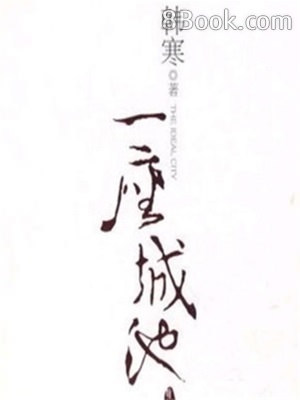 8Book.com
韩寒◎著
THE IDEAL CITY
一座城池